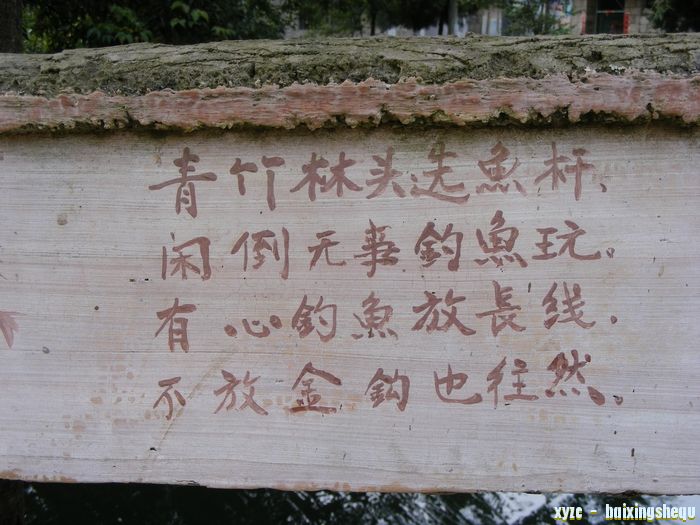 青竹林头选魚杆、
闲倒无事釣魚玩。
有心釣魚放長线．
不放金鈎也往然．
xyzc - baixingshequ